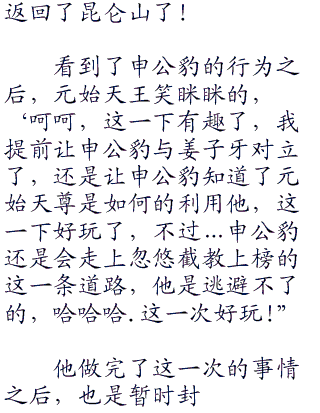 返回了昆仑山了！
看到了申公豹的行为之
后，元始天王笑眯眯的，
‘呵呵，这一下有趣了，我
提前让申公豹与姜子牙对立
了，还是让申公豹知道了元
始天尊是如何的利用他，这
一下好玩了，不过…申公豹
还是会走上忽悠截教上榜的
这一条道路，他是逃避不了
的，哈哈哈.这一次好玩!”
他做完了这一次的事情
之后，也是暂时封